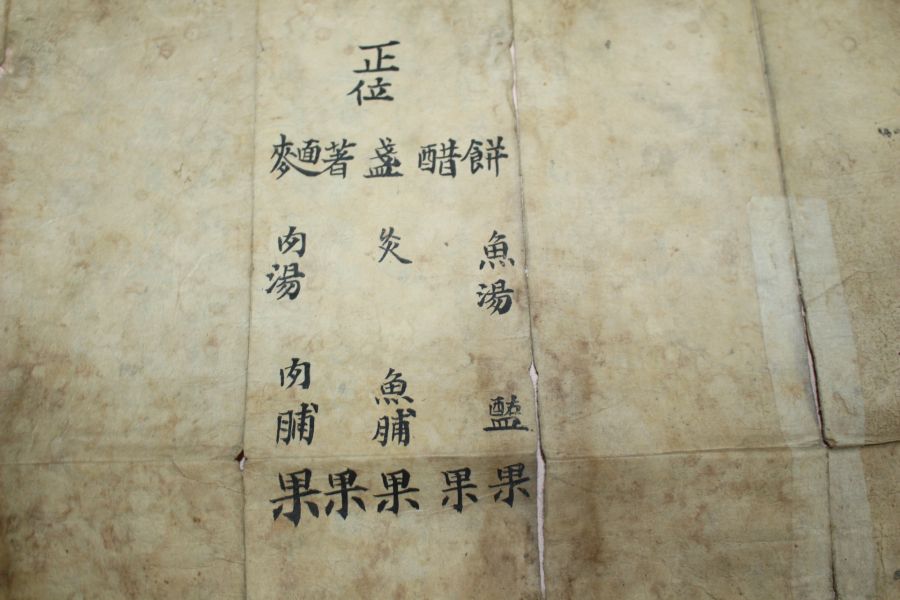 正位
麵 著 盞 醋 餠
肉湯 炙 魚湯
肉脯 魚脯 醢
果 果 果 果 果